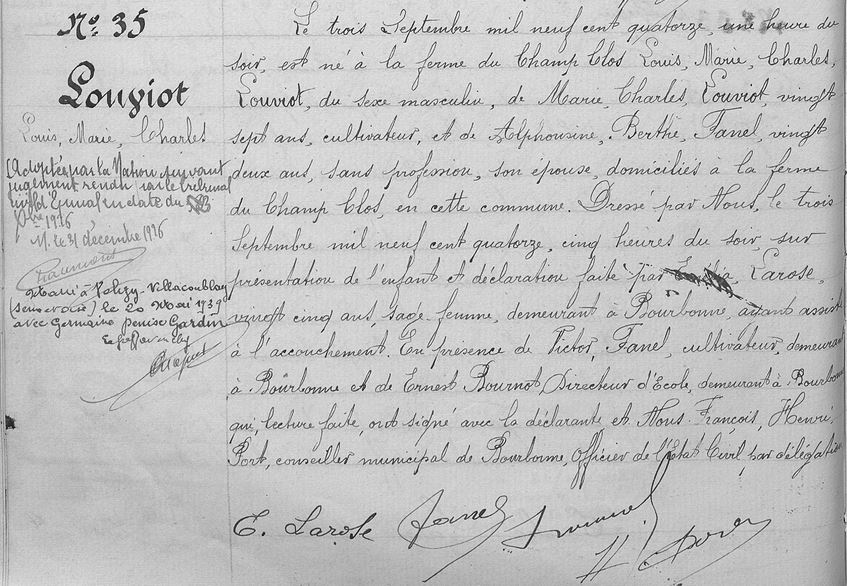 N° 35
Louviot
Louis, Marie, Charles
Adopté par la Nation suivant
jugement rendu par le tribunal
civil d'Epinal en date du
Xbre 1926
M. le 31 décembre 1926
Marié à Velizy-Villacoublay
(Seine et Oise) le 20 Mai 1939
avec Germaine Denise Gardin
Le greffier en chef
Le trois Septembre mil neuf cent quatorze, une heure du
soir, est né à la ferme du Champ Clos Louis, Marie, Charles,
Louviot, du sexe masculin, de Marie, Charles, Louviot, vingt
sept ans, cultivateur, et de Alphonsine, Berthe, Fanel, vingt
deux ans, sans profession, son épouse, domiciliés à la ferme
du Champ Clos, en cette commune. Dressé par Nous, le trois
Septembre mil neuf cent quatorze, cinq heures du soir, sur
présentation de l'enfant et déclaration faite par Larose,
vingt cinq ans, sage femme, demeurant à Bourbonne, ayant assisté
à l'accouchement. En présence de Victor, Fanel, cultivateur, demeurant
à Bourbonne et de Ernest Bournot, Directeur d'Ecole, demeurant à Bourbonne
qui, lecture faite, ont signé avec la déclarante et Nous. François, Henri,
Port, conseiller municipal de Bourbonne, Officier de l'Etat Civil, par délégation
E. Larose Fanel